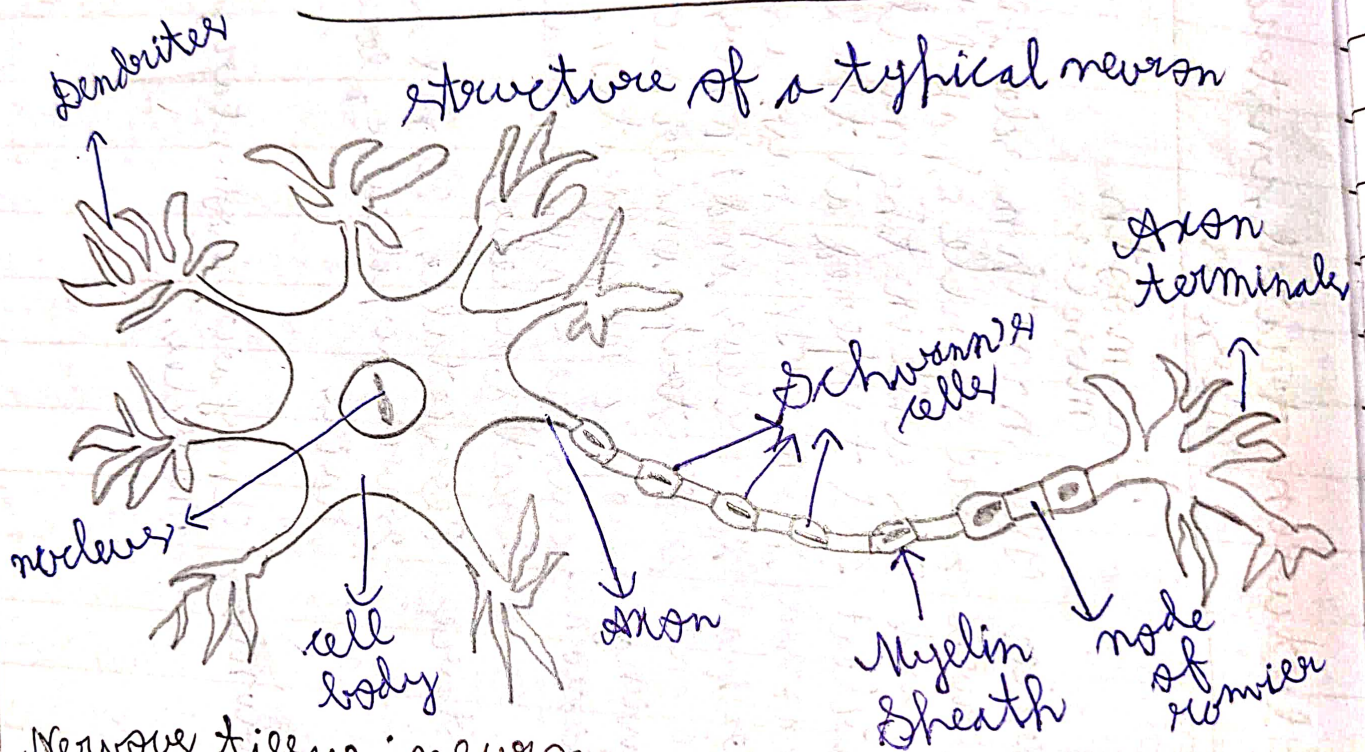 Dendrites
structure of a typical neuron
Axon
terminals
Schwann's
cells
nucleus
cell
body
Axon
Myelin
Sheath
node
of
ranvier
Nervous tissue : neuron